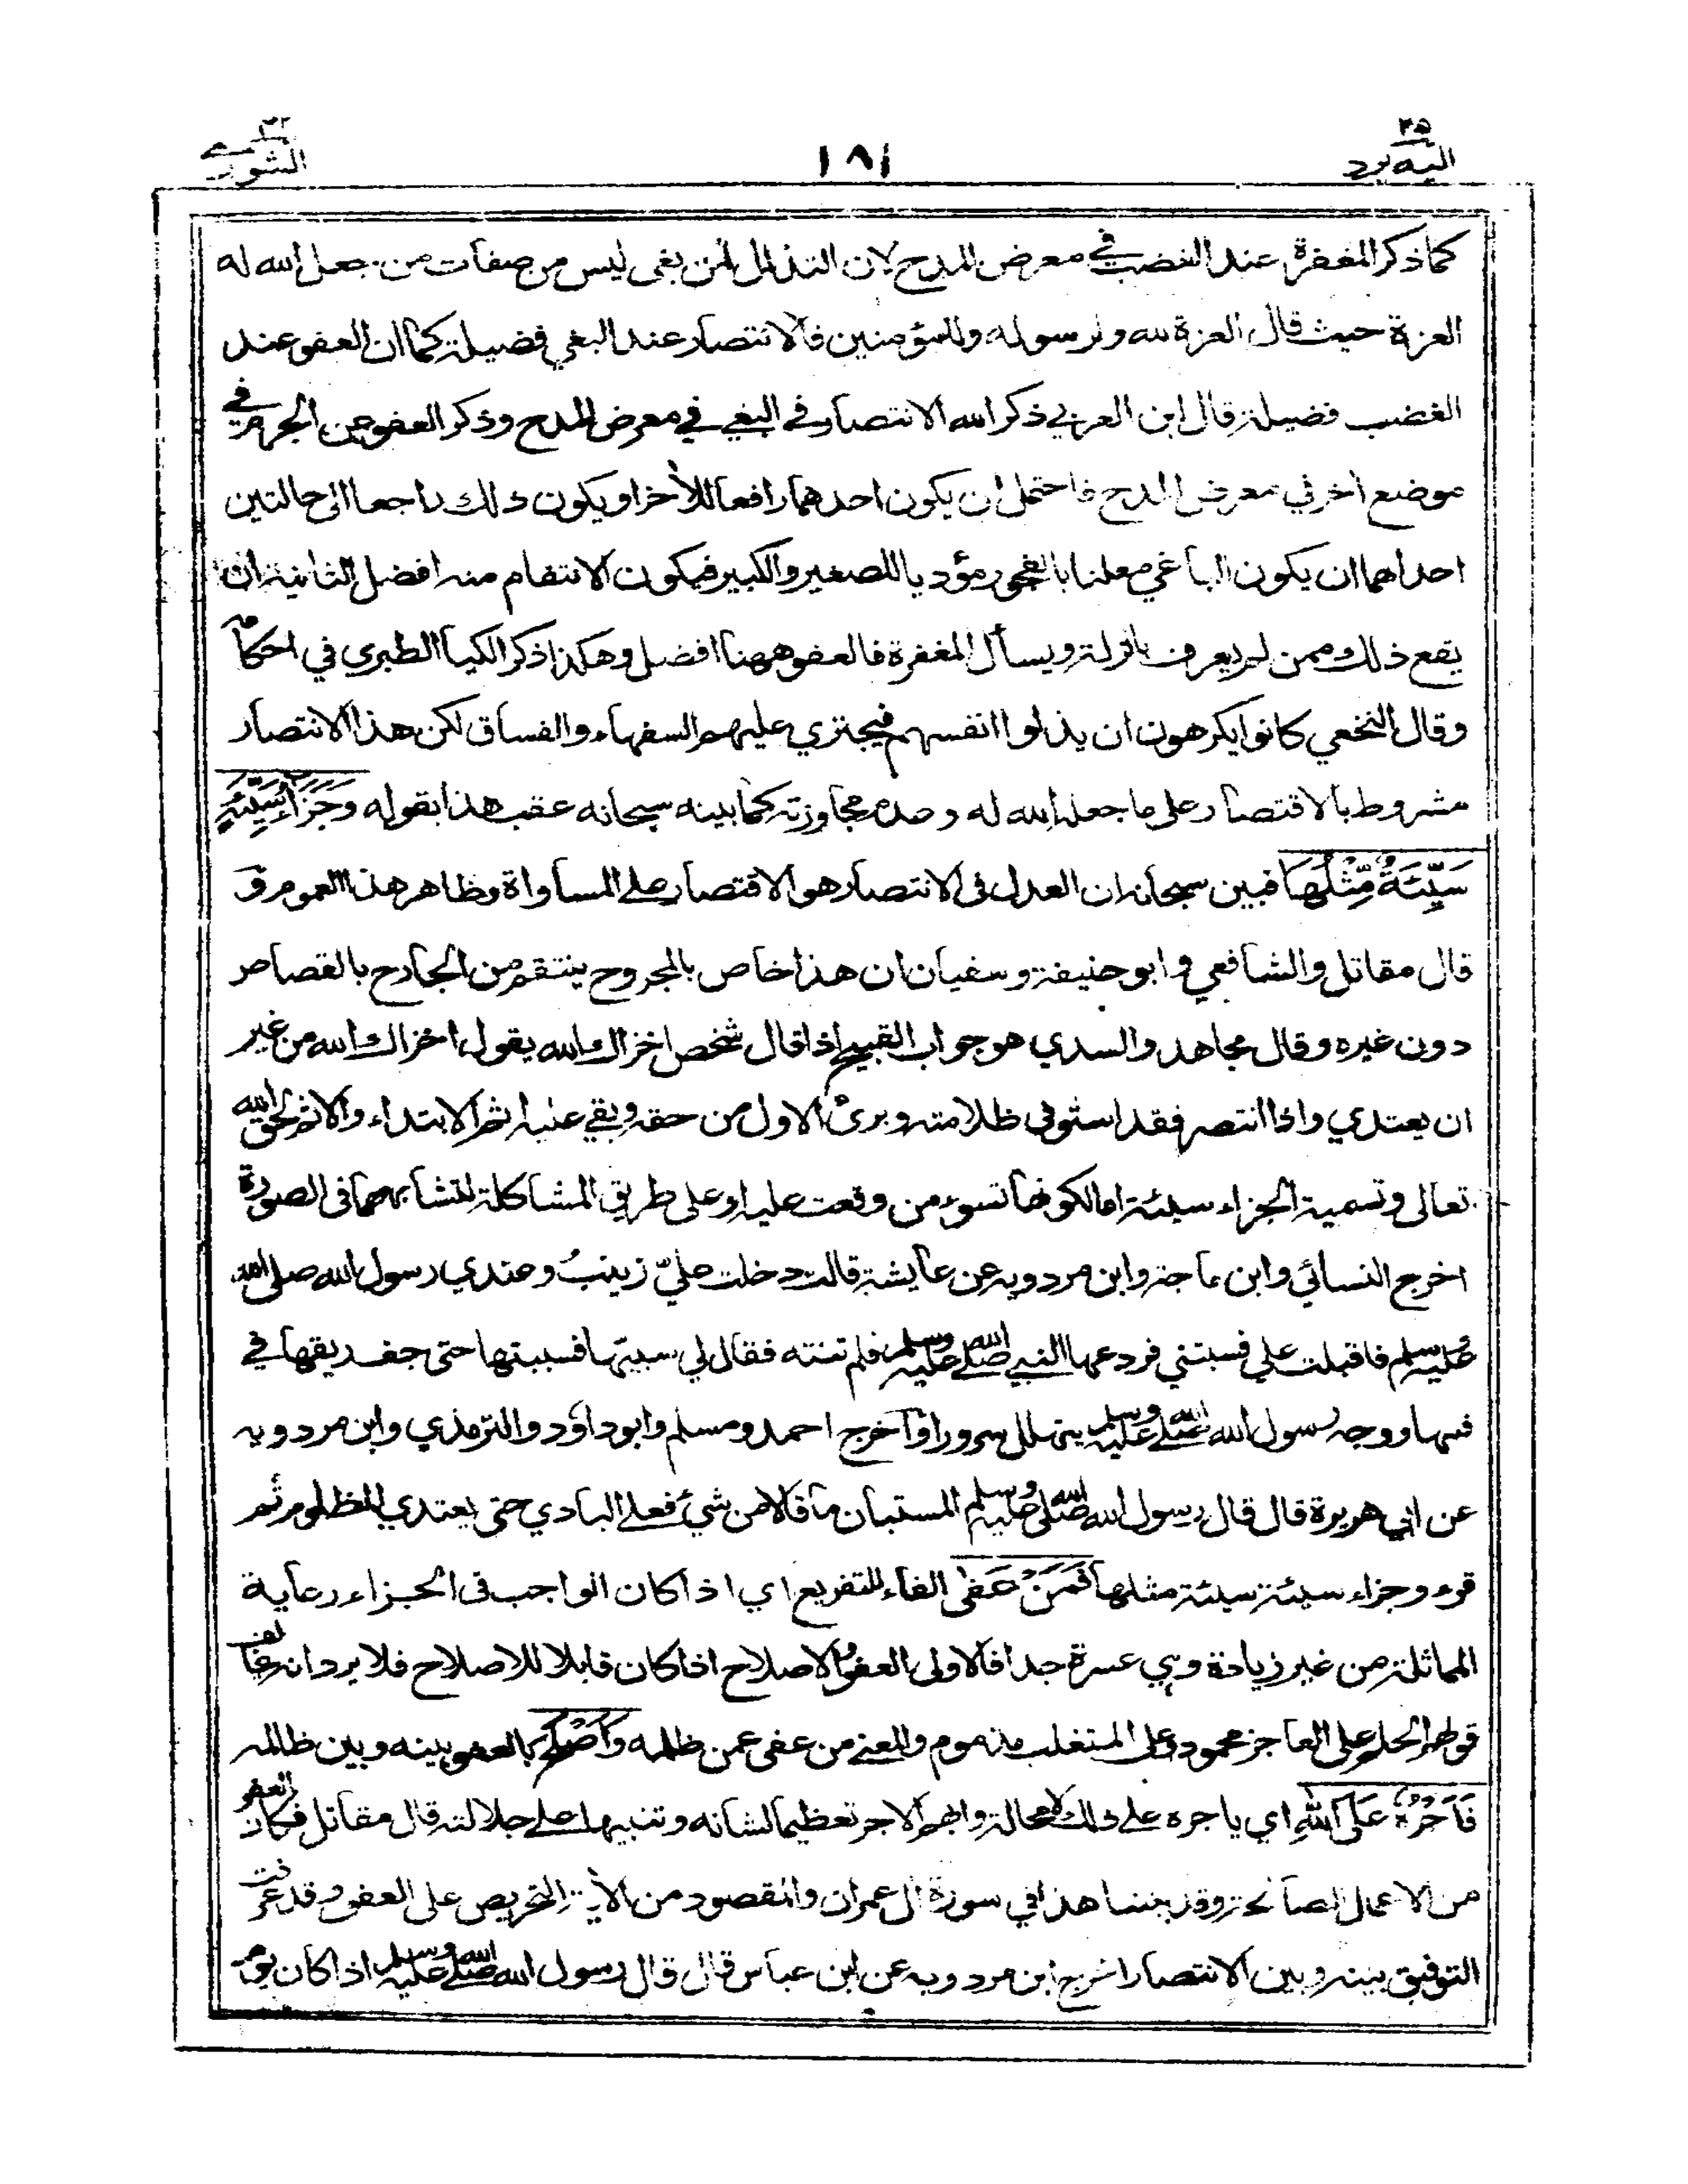 ٢٥
اليه يرد
١٨١
٤٢
الشورى
كما ذكر المغفرة عند الغضب في معرض المدح لان التذلل لمن بغى ليس من صفات من جعل الله له
العزة حيث قال العزة لله ولرسوله وللمؤمنين فالانتصار عند البغي فضيلة كما ان العفو عند
الغضب فضيلة قال ابن العربي ذكر الله الانتصار في البغي في معرض المدح وذكر العفو عن الجرم في
موضع اخر في معرض المدح فاحتمل ان يكون احدهما رافعا للأخر او يكون ذلك راجعا الى حالتين
احداهما ان يكون الباغي معلنا بالفجور مؤديا للصغير والكبير فيكون الانتقام منه افضل الثانية ان
يقع ذلك ممن لم يعرف بالزلة ويسأل المغفرة فالعفو ههنا افضل وهكذا ذكر الكيا الطبري في احكامه
وقال النخعي كانوا يكرهون ان يذلوا انفسهم فيجتري عليهم السفهاء والفساق لكن هذا الانتصار
مشروط بالاقتصار على ما جعله الله له وعدم مجاوزته كما بينه سبحانه عقب هذا بقوله وَجَزَاءُ سَيِّئَةٍ
سَيِّئَةٌ مِّثْلُهَا فبين سبحانه ان العدل في الانتصار هو الاقتصار على المساواة وظاهر هذا العموم وق
قال مقاتل والشافعي وابو حنيفة وسفيان ان هذا خاص بالمجروح ينتقم من الجارح بالقصاص
دون غيره وقال مجاهد والسدي هو جواب القبيح اذا قال شخص اخزاك الله يقول اخزاك الله من غير
ان يعتدي واذا انتصر فقد استوفى ظلامته وبرئ الاول من حقه وبقي عليه اثم الابتداء والاثم لحق الله
تعالى وتسمية الجزاء سيئة اما لكونها تسوء من وقعت عليه او على طريق المشاكلة لتشابههما في الصورة
اخرج النسائي وابن ماجة وابن مردويه عن عايشة قالت دخلت عليّ زينبُ وعندي رسول الله صلى الله
عليه وسلم فاقبلت علي فسبتني فردعها النبي صلى الله عليه وسلم فلم تنته فقال لي سبيّها فسببتها حتى جف ريقها في
فيها ووجه رسول الله صلى الله عليه وسلم يتهلل سرورا وأخرج احمد ومسلم وابو داؤد والترمذي وابن مردويه
عن ابي هريرة قال قال رسول الله صلى الله عليه وسلم المستبان ما قالا من شيء فعلى البادي حتى يعتدي المظلوم ثم
قرء وجزاء سيئة سيئة مثلها فَمَنْ عَفٰى الفاء للتفريع اي اذا كان الواجب في الجزاء رعاية
المماثلة من غير زيادة وهي عسرة جدا فالاولى العفو والاصلاح اذا كان قابلا للاصلاح فلا يرد انه يخالف
قولهم الحلم على العاجز محمود وعلى المتغلب مذموم والمعنى من عفى عمن ظلمه وَأَصْلَحَ بالعفو بينه وبين ظالمه
فَأَجْرُهٗ عَلَى اللهِ اي ياجره على ذلك لا محالة وابهم الاجر تعظيما لشانه وتنبيها على جلالته قال مقاتل فكان العفو
من الاعمال الصالحة وقد بينا هذا في سورة ال عمران والمقصود من الاية التحريض على العفو وقد عرفت
التوفيق بينه وبين الانتصار اخرج ابن مردويه عن ابن عباس قال قال رسول الله صلى الله عليه وسلم اذا كان يوم